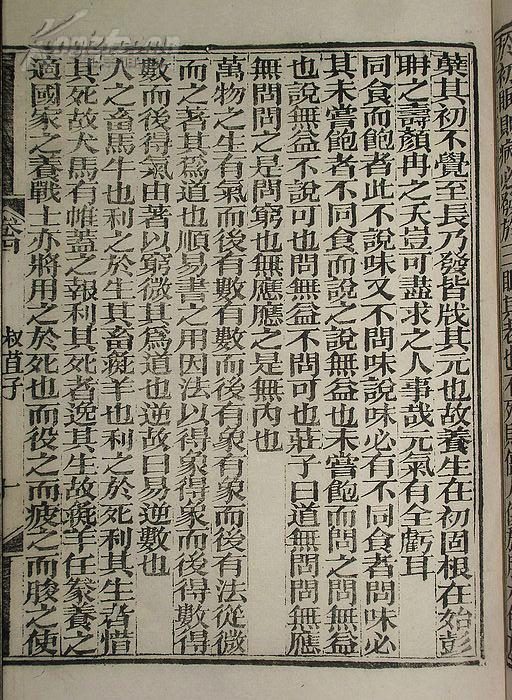 蘖其初不覺至長乃發皆戕其元也故養生在初固根在始彭
聃之壽顏冉之夭豈可盡求之人事哉元氣有全虧耳
同食而飽者此不說味又不問味說味必有不同食者問味必
其未嘗飽者不同食而說之說無益也未嘗飽而問之問無益
也說無益不說可也問無益不問可也莊子曰道無問問無應
無問問之是問窮也無應應之是無內也
萬物之生有氣而後有數有數而後有象有象而後有法從微
而之著其爲道也順易書之用因法以得象得象而後得數得
數而後得氣由著以窮微其爲道也逆故曰易逆數也
人之畜馬牛也利之於生其畜羊也利之於死利其生者惜
其死故犬馬有帷蓋之報利其死者逸其生故羊任豢養之
適國家之養戰士亦將用之於死也而役之而疲之而朘之使
叔苴子